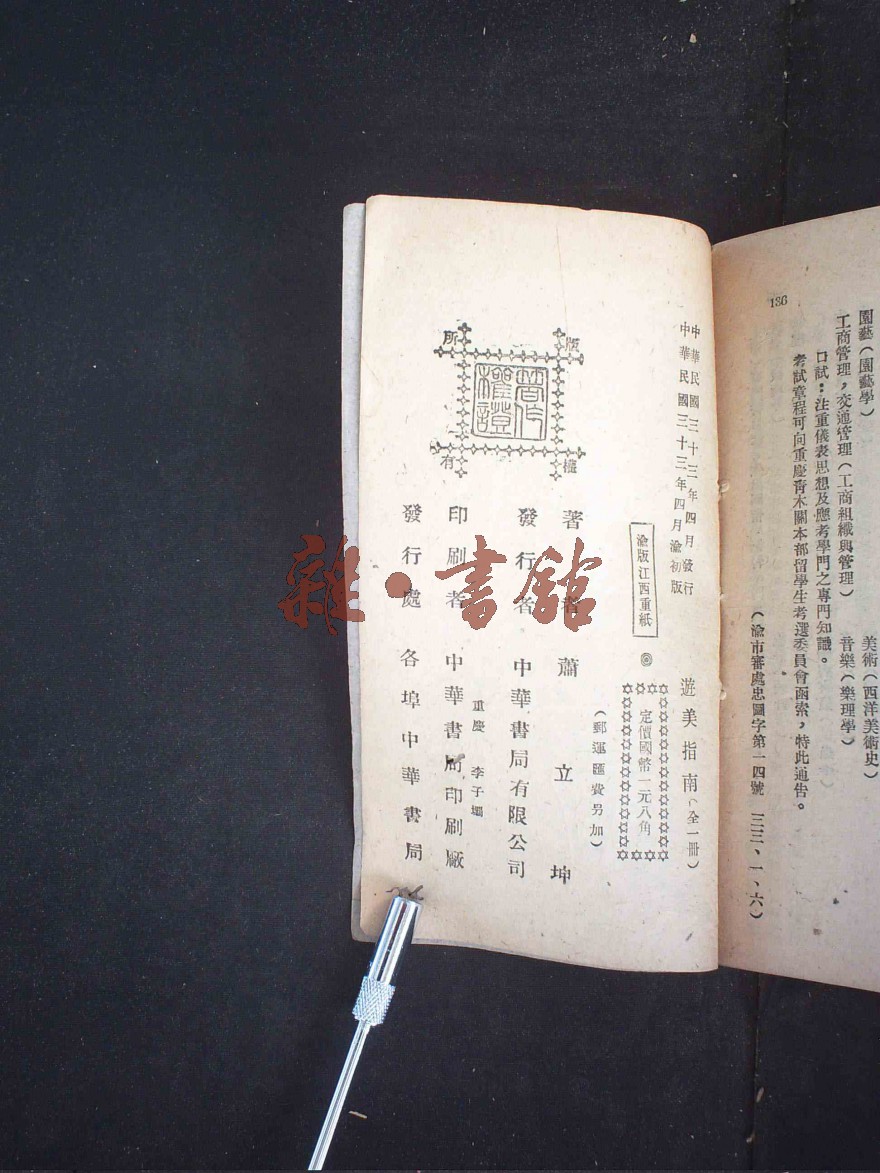 136
園藝（園藝學）
美術（西洋美術史）
工商管理，交通管理（工商組織與管理）
音樂（樂理學）
口試：注重儀表思想及應考學門之專門知識。
考試章程可向重慶青木關本部留學生考選委員會函索，特此通告。
（渝市審處忠圖字第一四號　三三、一、六）
中華民國三十三年四月發行
中華民國三十三年四月渝初版
遊美指南（全一冊）
渝版江西重紙
◎
定價國幣一元八角
（郵運匯費另加）
版權所有
著作權證
著者　蕭立坤
發行者　中華書局有限公司
重慶　李子壩
印刷者　中華書局印刷廠
發行處　各埠中華書局
雜·書館